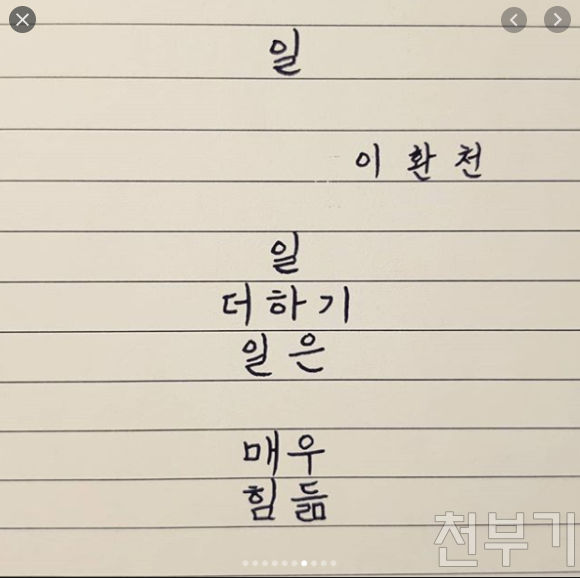 일
이환천
일
더하기
일은
매우
힘듦
천부기